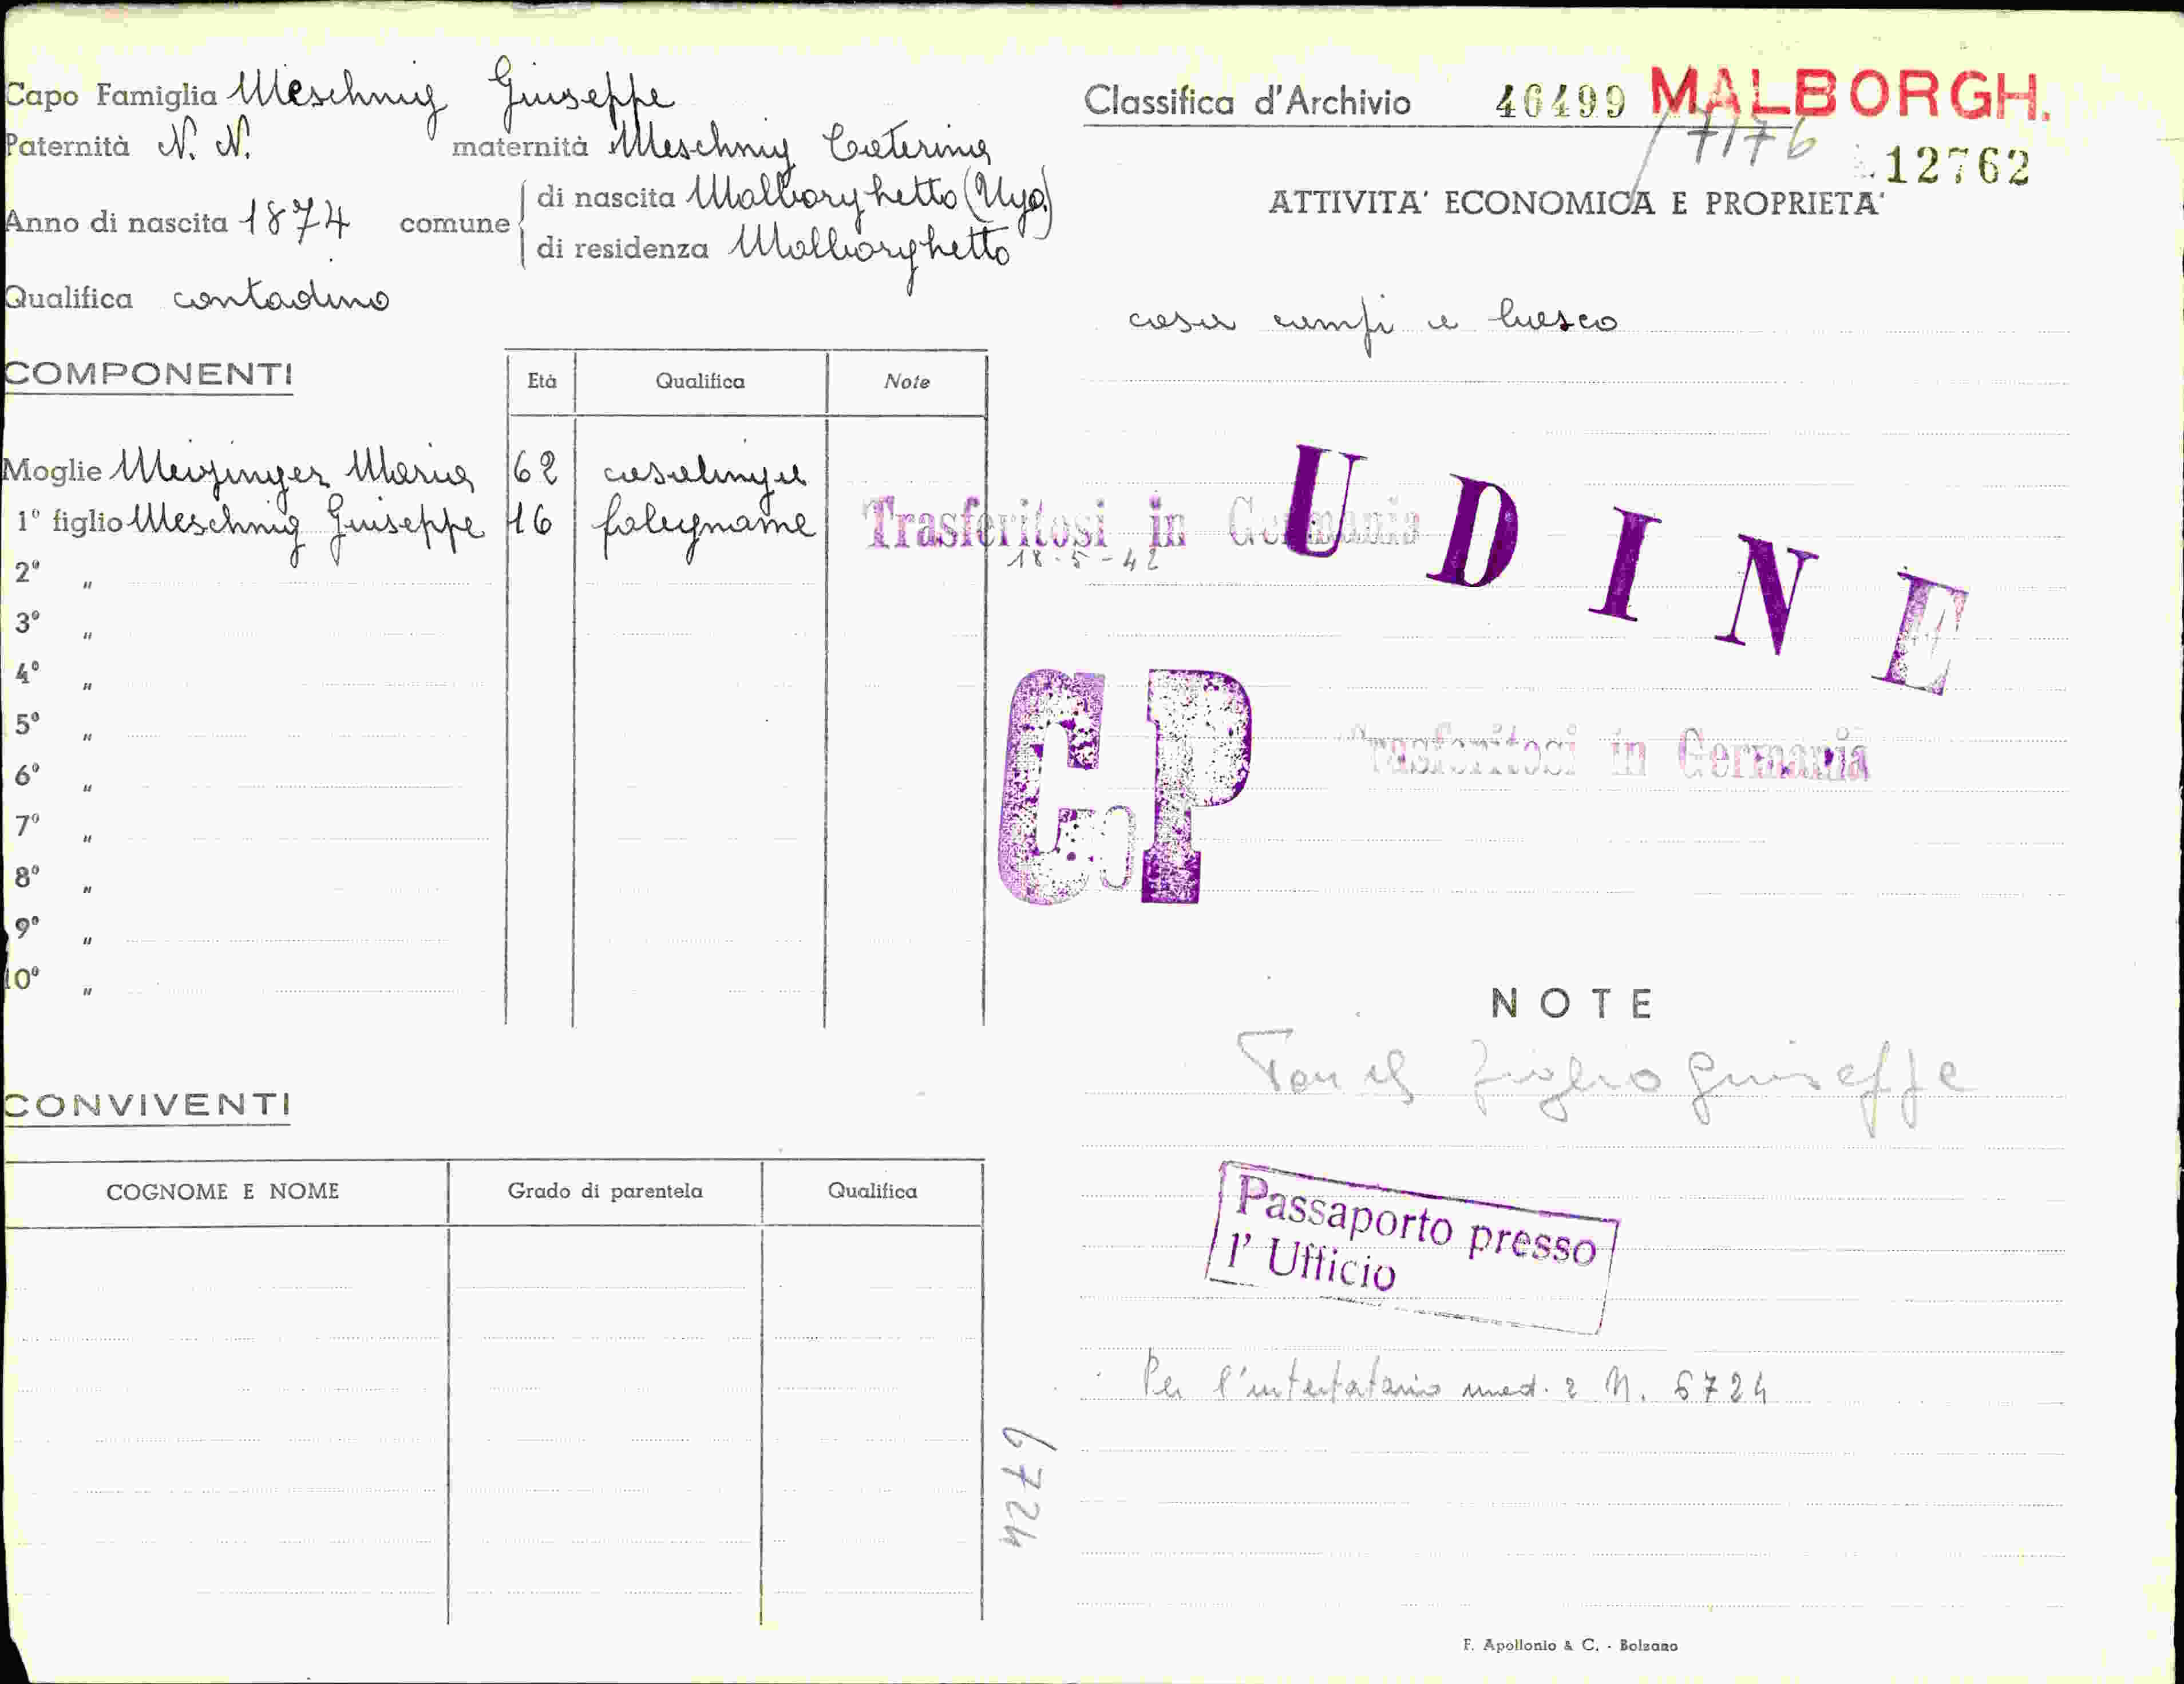 Capo Famiglia Meschnig Giuseppe
Paternità N. N. maternità Meschnig Caterina
Anno di nascita 1874 comune
di nascita Malborghetto (Ugo.)
di residenza Malborghetto
Qualifica contadino
COMPONENTI
Età Qualifica Note
Moglie Meizinger Maria 62 casalinga
1º figlio Meschnig Giuseppe 16 falegname Trasferitosi in Germania
18-5-42
2º "
3º "
4º "
5º "
6º "
7º "
8º "
9º "
10º "
CONVIVENTI
COGNOME E NOME Grado di parentela Qualifica
6724
Classifica d'Archivio 46499 MALBORGH.
7176 12762
ATTIVITA' ECONOMICA E PROPRIETA'
casa campi e bosco
UDINE
C P
Trasferitosi in Germania
NOTE
figlio Giuseppe
Passaporto presso
l' Ufficio
Per l'intestatario med. 2 N. 6724
F. Apollonio & C. - Bolzano